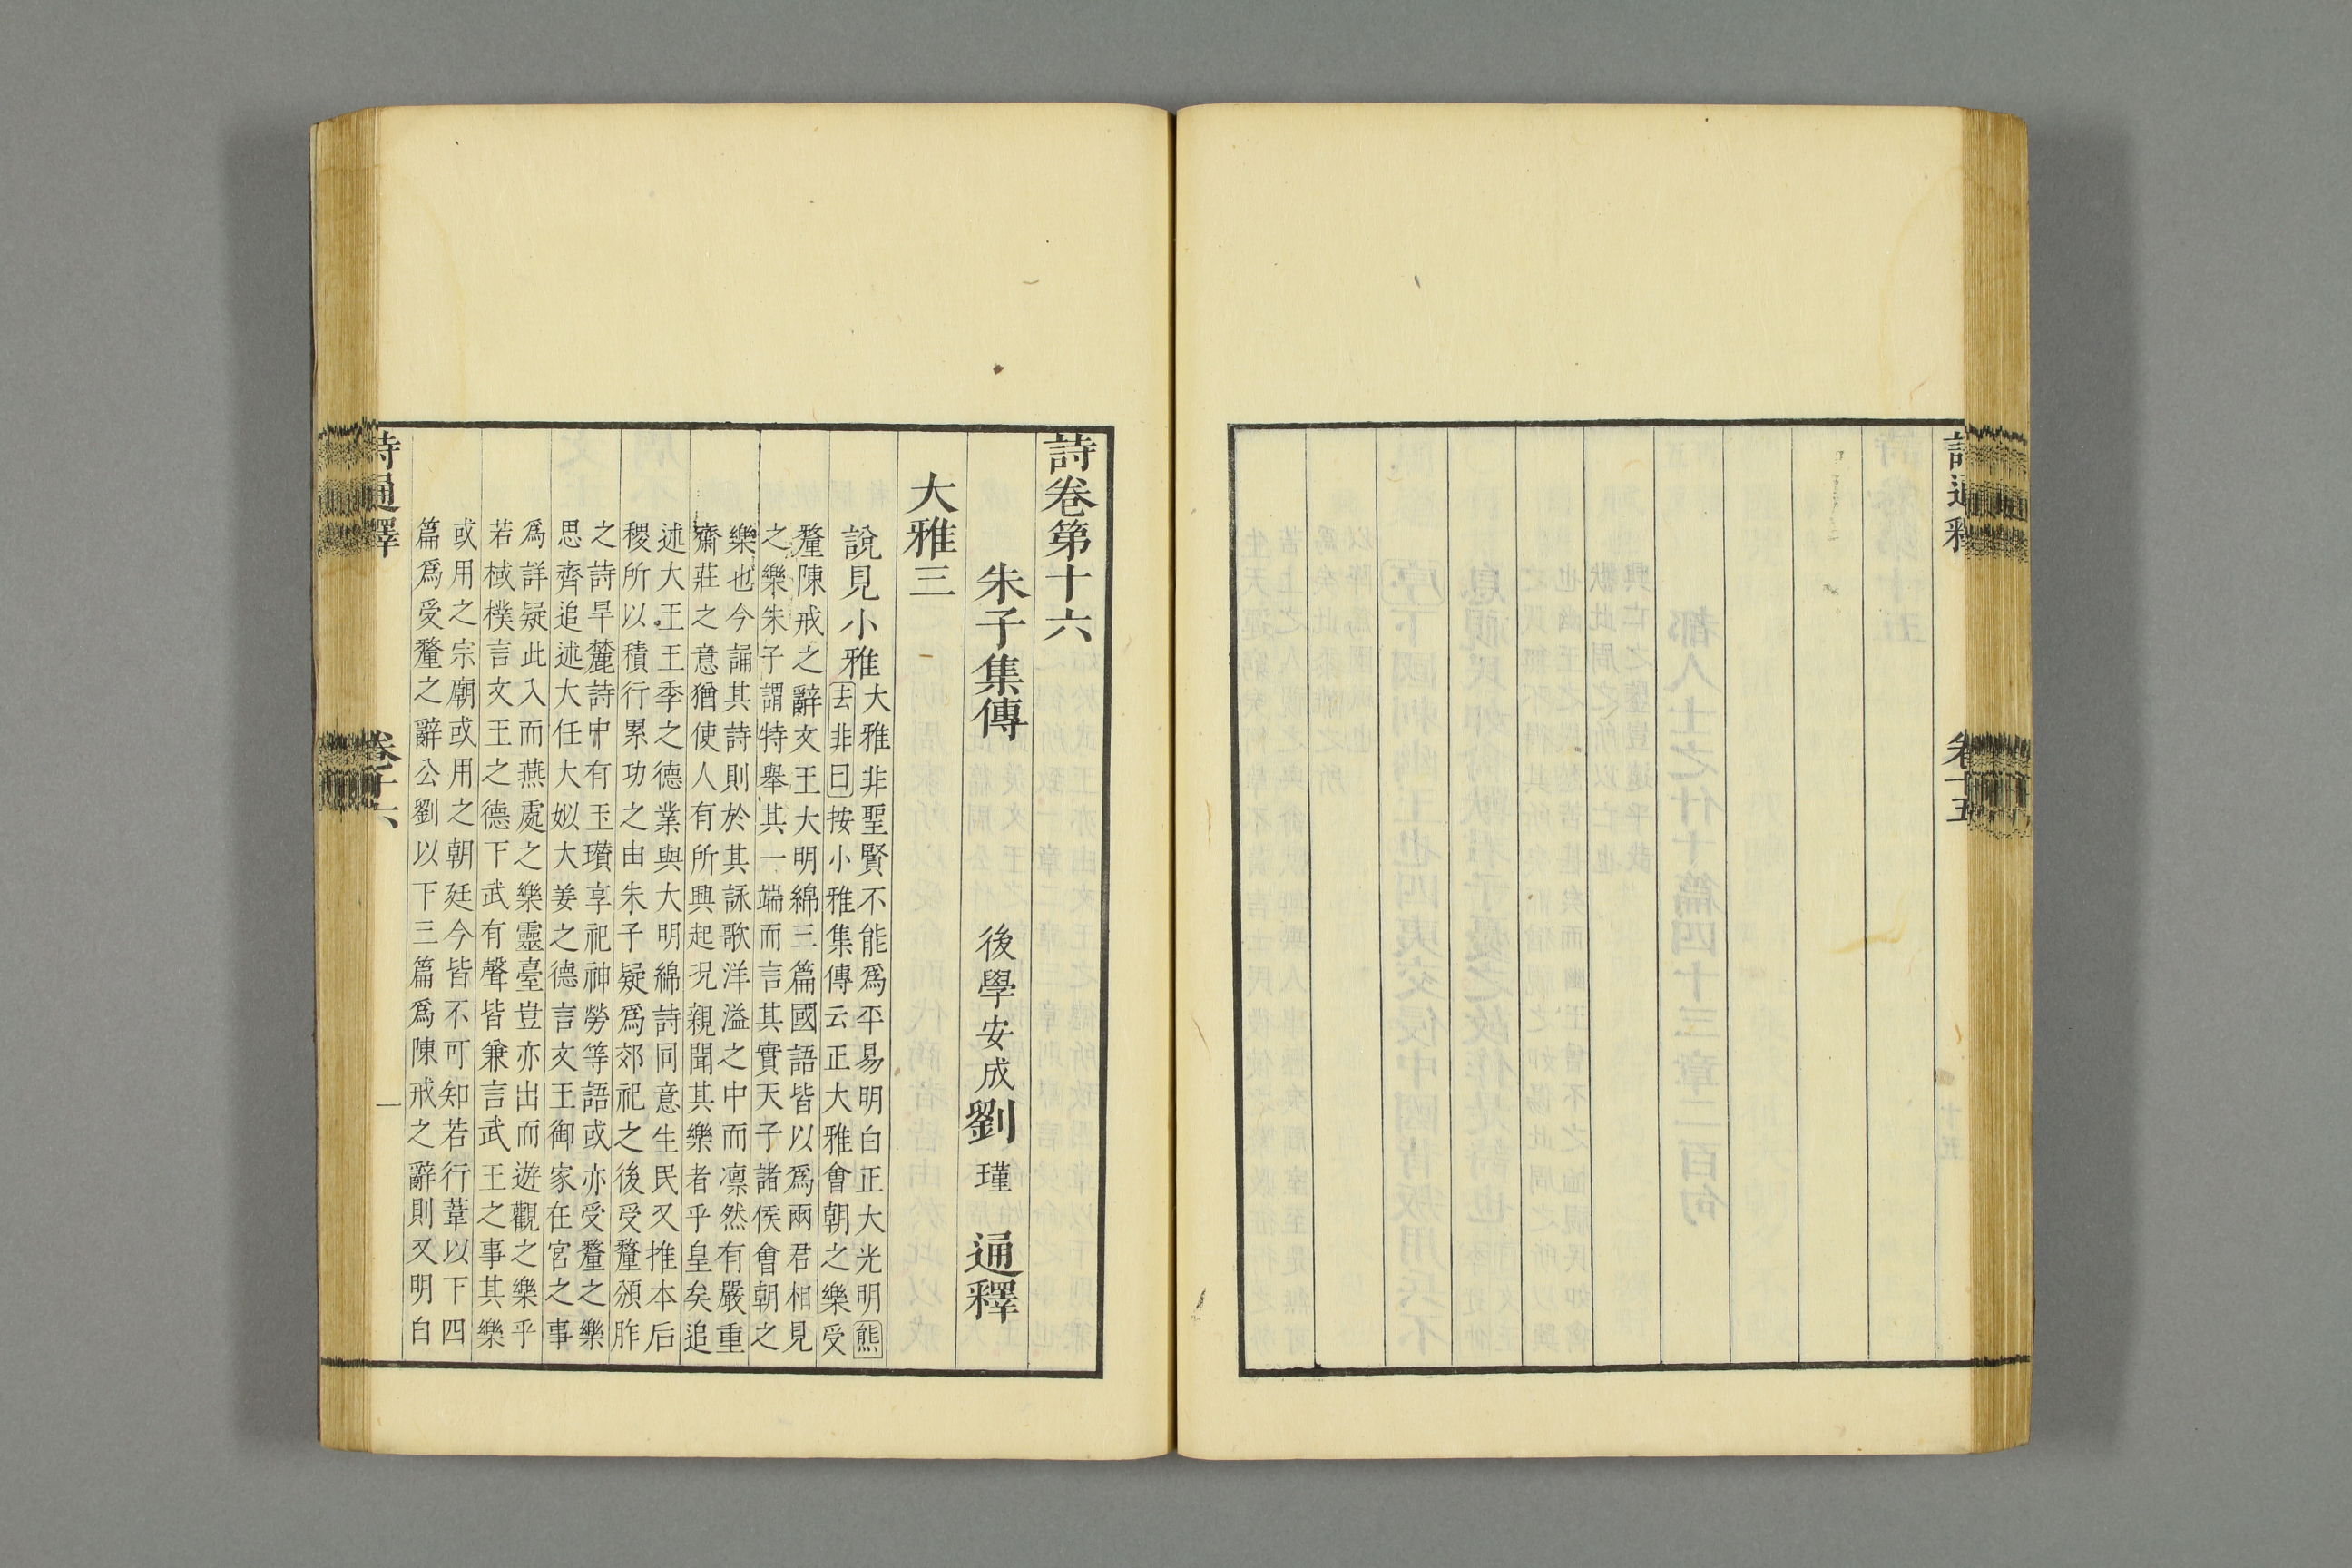 詩通釋 卷十五
詩卷第十六
朱子集傳 後學安成劉瑾 通釋
大雅三
說見小雅大雅非聖賢不能爲平易明白正大光明熊
去非曰按小雅集傳云正大雅會朝之樂受
釐陳戒之辭文王大明綿三篇國語皆以爲兩君相見
之樂朱子謂特舉其一端而言其實天子諸侯會朝之
樂也今誦其詩則於其詠歌洋溢之中而凛然有嚴重
齋莊之意猶使人有所興起况親聞其樂者乎皇矣追
述大王王季之德業與大明綿詩同意生民又推本后
稷所以積行累功之由朱子疑爲郊祀之後受釐頒胙
之詩旱麓詩中有玉瓚享祀神勞等語或亦受釐之樂
思齊追述大任大姒大姜之德言文王御家在宮之事
爲詳疑此入而燕處之樂靈臺豈亦出而遊觀之樂乎
若棫樸言文王之德下武有聲皆兼言武王之事其樂
或用之宗廟或用之朝廷今皆不可知若行葦以下四
篇爲受釐之辭公劉以下三篇爲陳戒之辭則又明白
詩通釋 卷十六 一